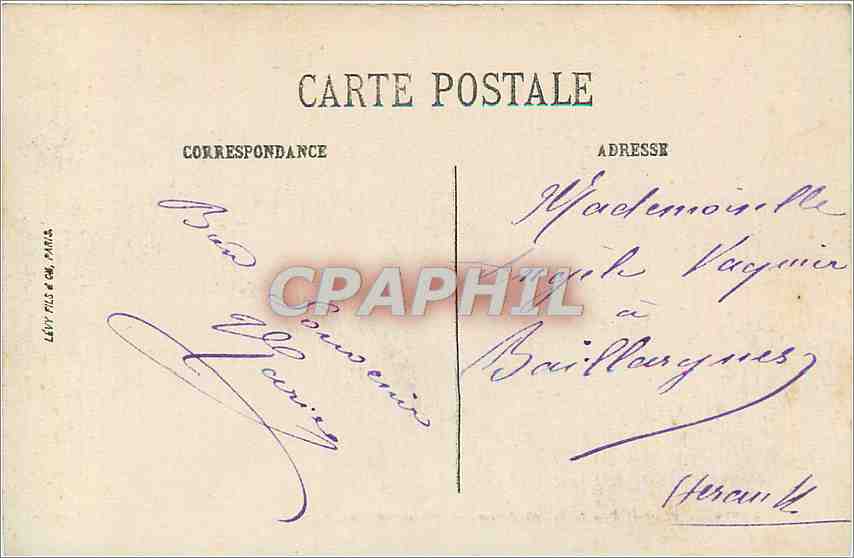 CARTE POSTALE
CORRESPONDANCE
ADRESSE
LÉVY FILS & Cie, PARIS.
Bon
Souvenir
Marie
Mademoiselle
Angèle
à
Baillargues
Herault
CPAPHIL